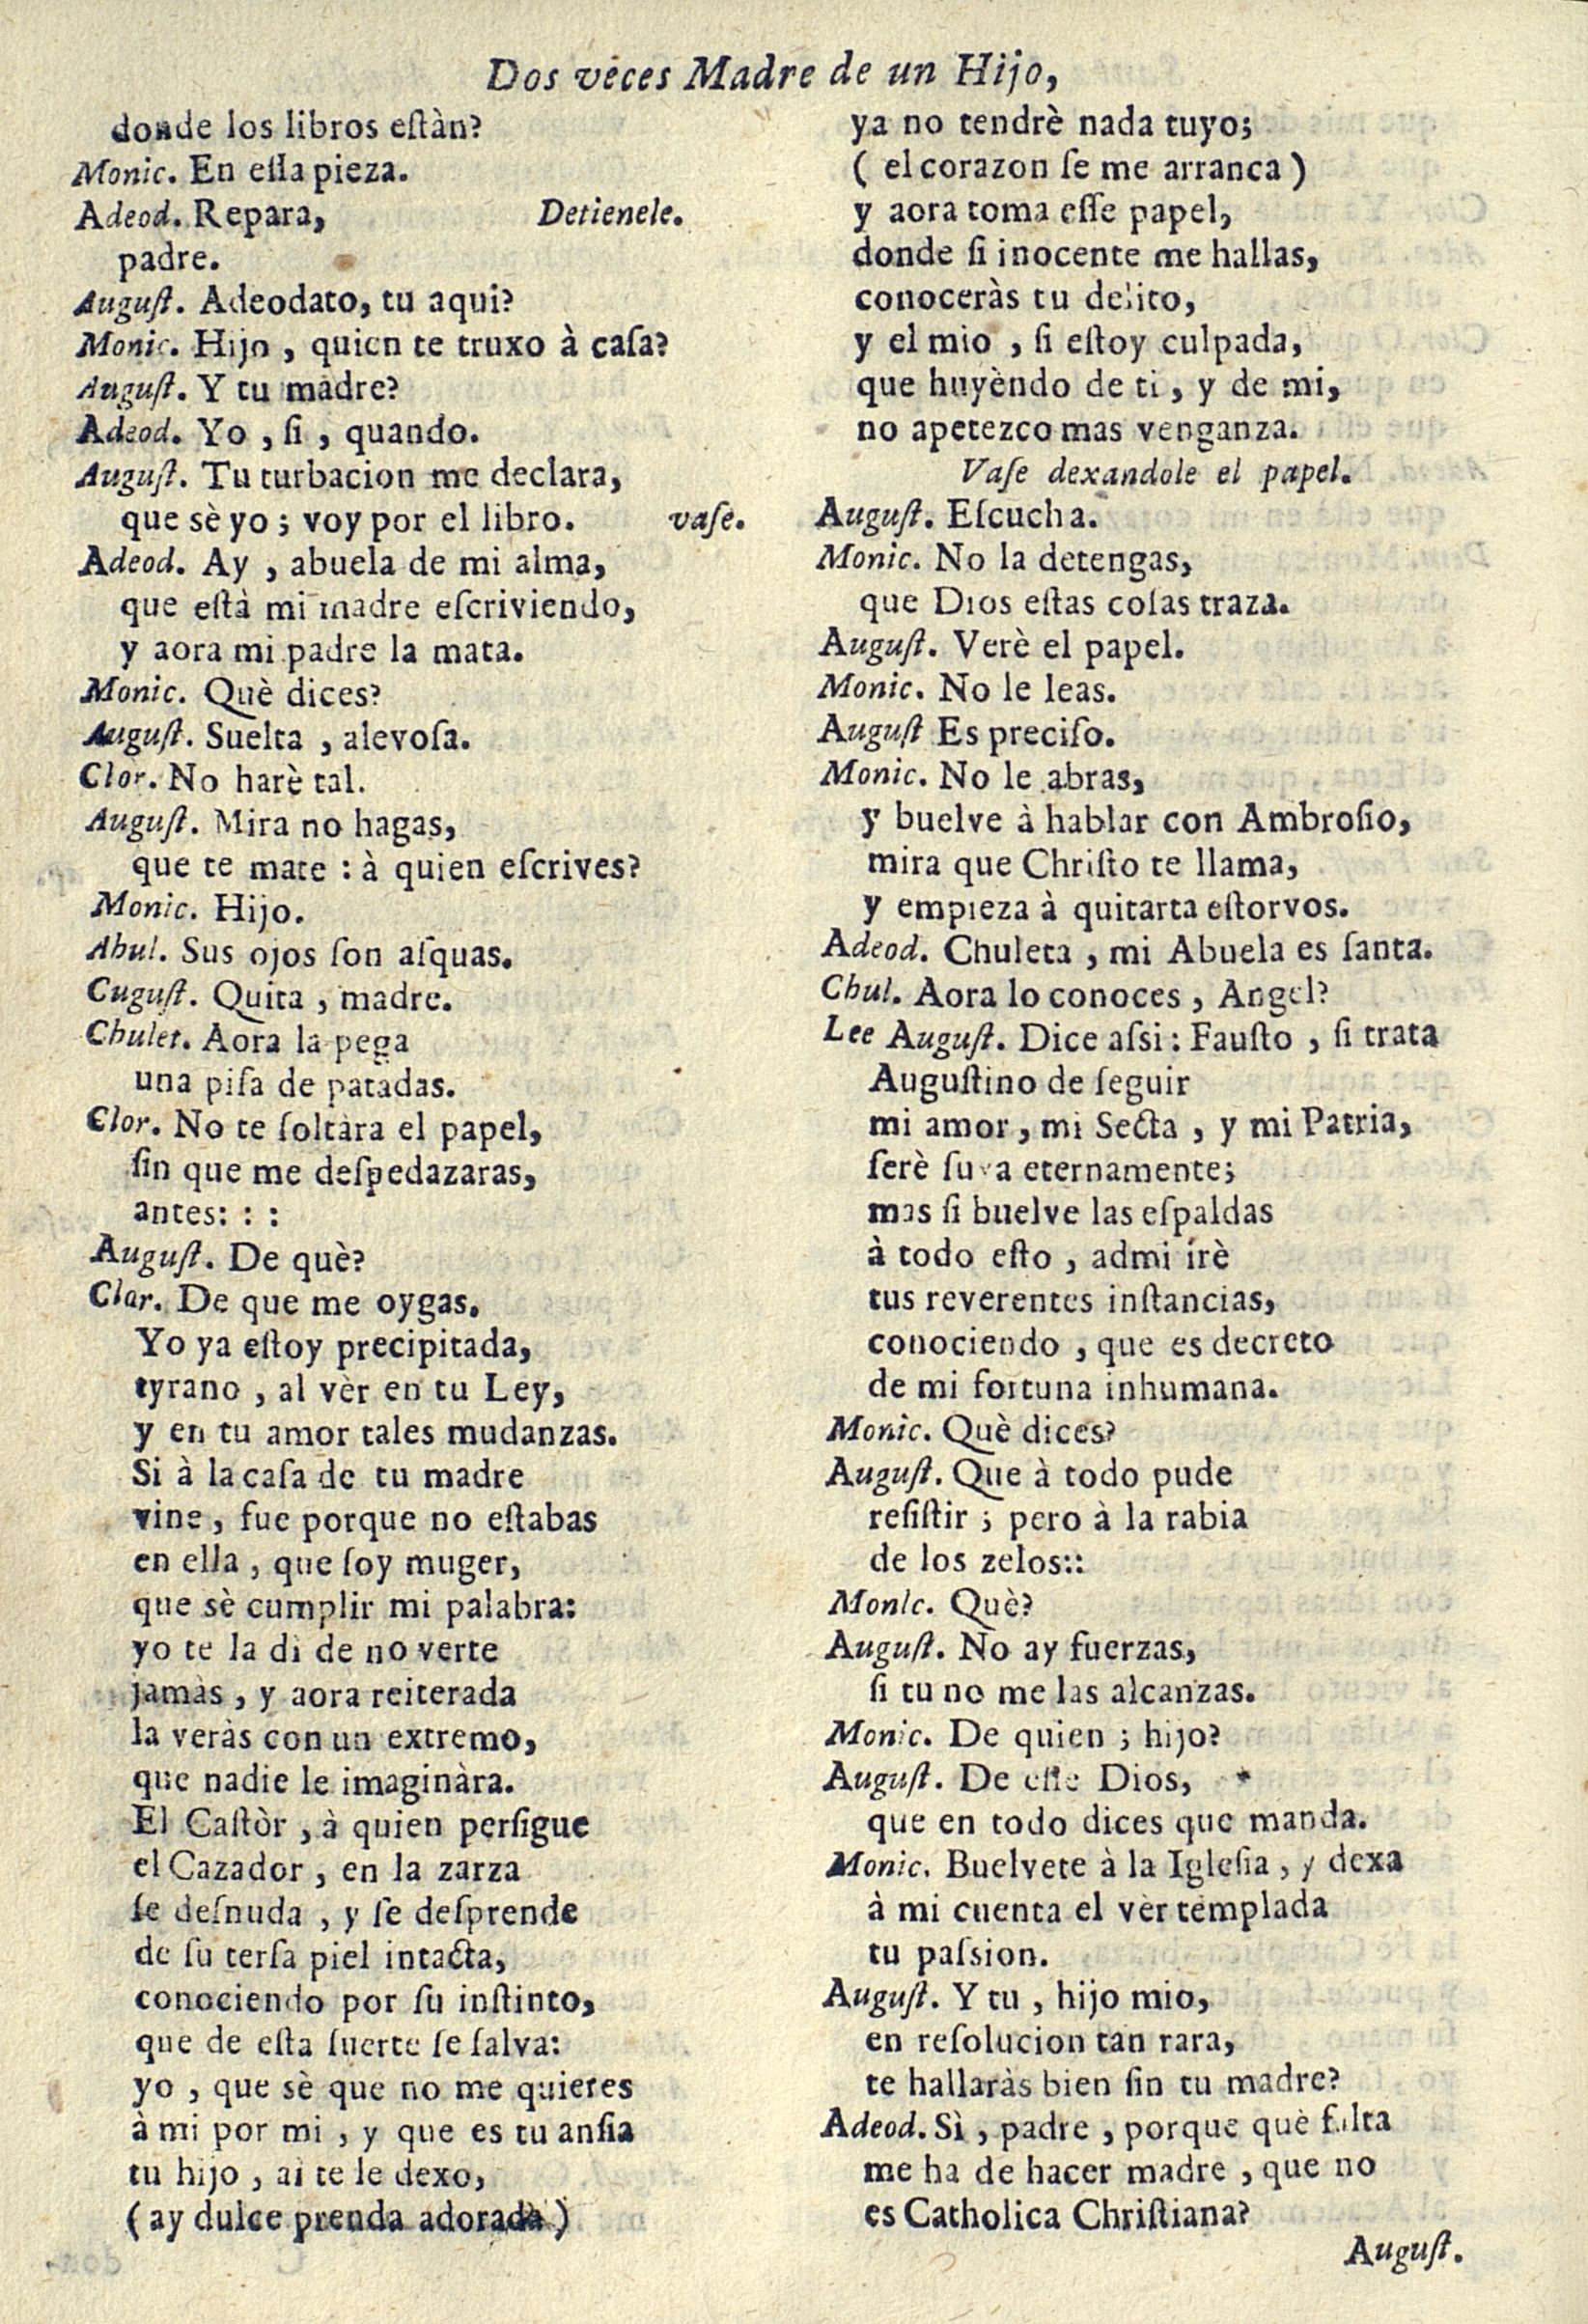 Dos veces Madre de un Hijo,
donde los libros eſtàn?
Monic. En eſſa pieza.
Adeod. Repara, Detienele.
padre.
Auguſt. Adeodato, tu aqui?
Monic. Hijo , quien te truxo à caſa?
Auguſt. Y tu madre?
Adeod. Yo , ſi , quando.
Auguſt. Tu turbacion me declara,
que sè yo ; voy por el libro. vaſe.
Adeod. Ay , abuela de mi alma,
que eſtà mi madre eſcriviendo,
y aora mi padre la mata.
Monic. Què dices?
Auguſt. Suelta , alevoſa.
Clor. No harè tal.
Auguſt. Mira no hagas,
que te mate : à quien eſcrives?
Monic. Hijo.
Ahul. Sus ojos ſon aſquas.
Cuguſt. Quita , madre.
Chulet. Aora la pega
una piſa de patadas.
Clor. No te ſoltàra el papel,
ſin que me deſpedazaras,
antes: : :
Auguſt. De què?
Clar. De que me oygas.
Yo ya eſtoy precipitada,
tyrano , al vèr en tu Ley,
y en tu amor tales mudanzas.
Si à la caſa de tu madre
vine , fue porque no eſtabas
en ella , que ſoy muger,
que sè cumplir mi palabra:
yo te la dì de no verte
jamàs , y aora reiterada
la veràs con un extremo,
que nadie le imaginàra.
El Caſtòr , à quien perſigue
el Cazador , en la zarza
ſe deſnuda , y ſe deſprende
de ſu terſa piel intacta,
conociendo por ſu inſtinto,
que de eſta ſuerte ſe ſalva:
yo , que sè que no me quieres
à mi por mi , y que es tu anſia
tu hijo , aì te le dexo,
( ay dulce prenda adorada )
ya no tendrè nada tuyo;
( el corazon ſe me arranca )
y aora toma eſſe papel,
donde ſi inocente me hallas,
conoceràs tu delito,
y el mio , ſi eſtoy culpada,
que huyèndo de ti , y de mi,
no apetezco mas venganza.
Vaſe dexandole el papel.
Auguſt. Eſcucha.
Monic. No la detengas,
que Dios eſtas coſas traza.
Auguſt. Verè el papel.
Monic. No le leas.
Auguſt Es preciſo.
Monic. No le abras,
y buelve à hablar con Ambroſio,
mira que Chriſto te llama,
y empieza à quitarta eſtorvos.
Adeod. Chuleta , mi Abuela es ſanta.
Chul. Aora lo conoces , Angel?
Lee Auguſt. Dice aſsi : Fauſto , ſi trata
Auguſtino de ſeguir
mi amor , mi Secta , y mi Patria,
ſerè ſuya eternamente;
mas ſi buelve las eſpaldas
à todo eſto , admitirè
tus reverentes inſtancias,
conociendo , que es decreto
de mi fortuna inhumana.
Monic. Què dices?
Auguſt. Que à todo pude
reſiſtir ; pero à la rabia
de los zelos::
Monic. Què?
Auguſt. No ay fuerzas,
ſi tu no me las alcanzas.
Monic. De quien ; hijo?
Auguſt. De eſſe Dios,
que en todo dices que manda.
Monic. Buelvete à la Igleſia , y dexa
à mi cuenta el vèr templada
tu paſsion.
Auguſt. Y tu , hijo mio,
en reſolucion tan rara,
te hallaràs bien ſin tu madre?
Adeod. Sì , padre , porque què falta
me ha de hacer madre , que no
es Catholica Chriſtiana?
Auguſt.